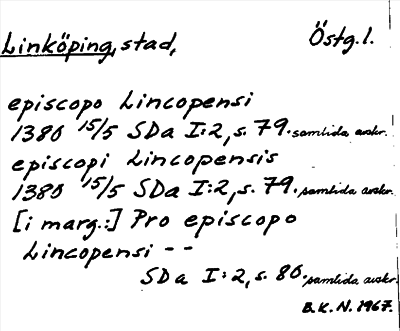 Linköping, stad, Östg. l.
episcopo Lincopensi
1380 15/5 SDa I:2, s. 79. samtida avskr.
episcopi Lincopensis
1380 15/5 SDa I:2, s. 79. samtida avskr.
[i marg.:] Pro episcopo
Lincopensi - -
SDa I:2, s. 80. samtida avskr.
B.K.N. 1967.